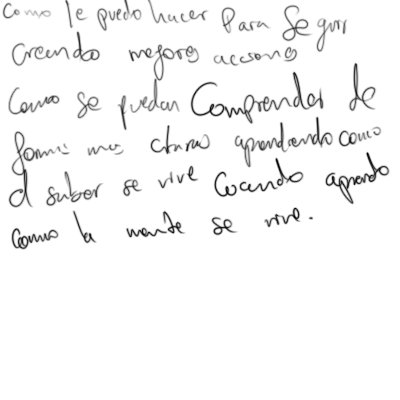 Como le puedo hacer Para Seguir
Creando mejores acciones
Como se puedan Comprender de
forma mas aprendiendo como
el saber se vive Cuando aprendo
Como la mente se vive.